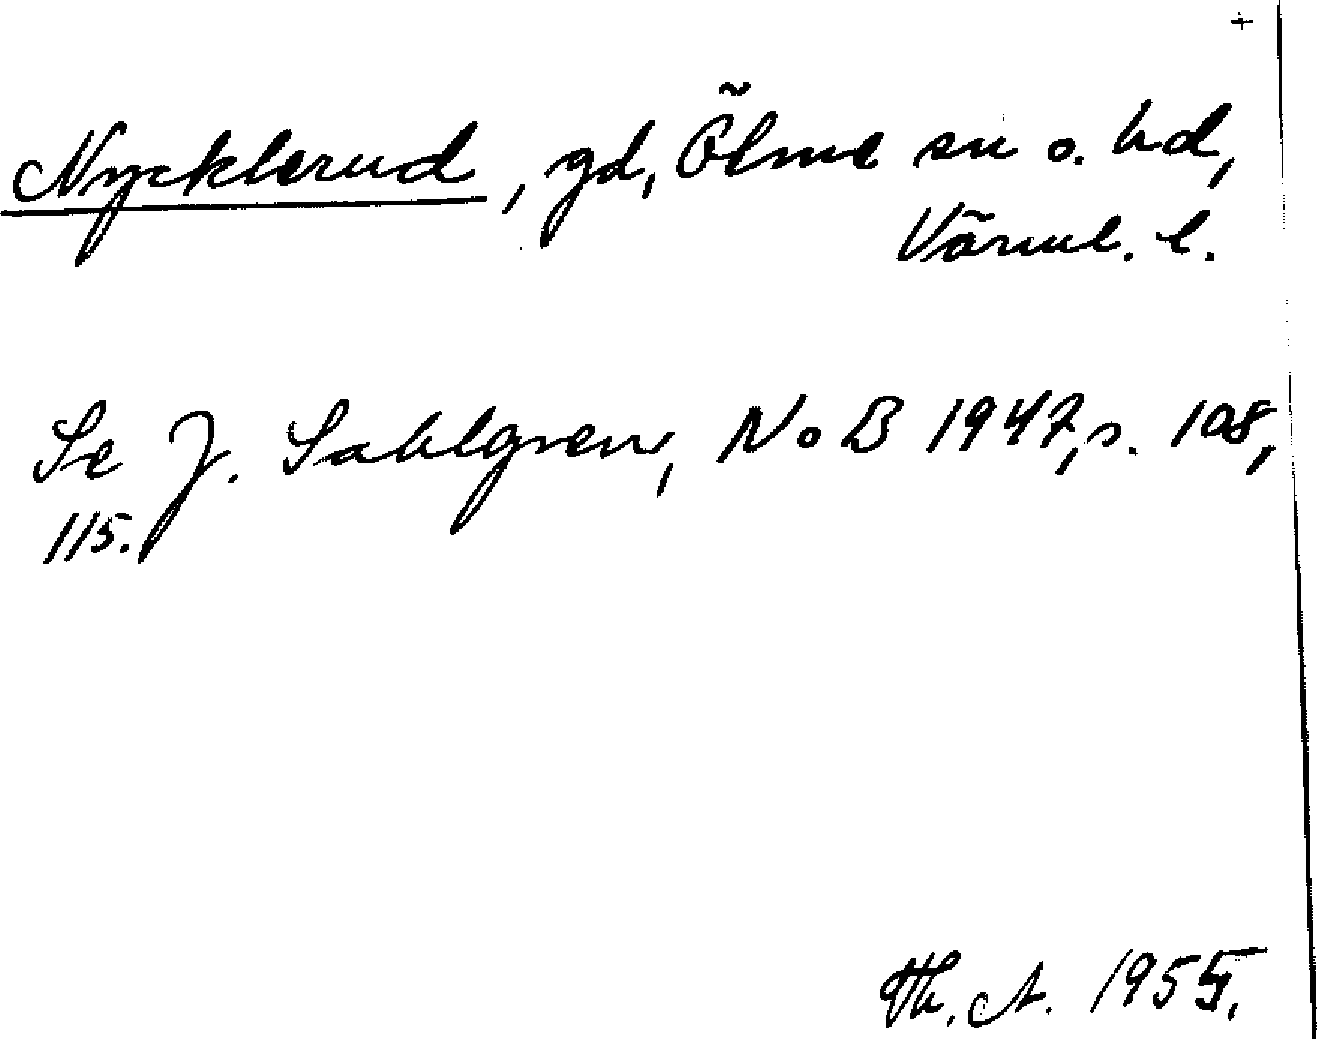 +
Nycklerud, gd, Ölme sn o. hd,
Värml. l.
Se J. Sahlgren, NoB 1947, s. 108,
115.
Th. A. 1955.